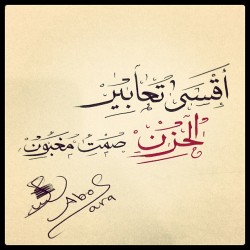 أَقْسَى تَعَابِيرْ
الحُزنْ صَمْتُ مَغبُونْ
Abo
Sara